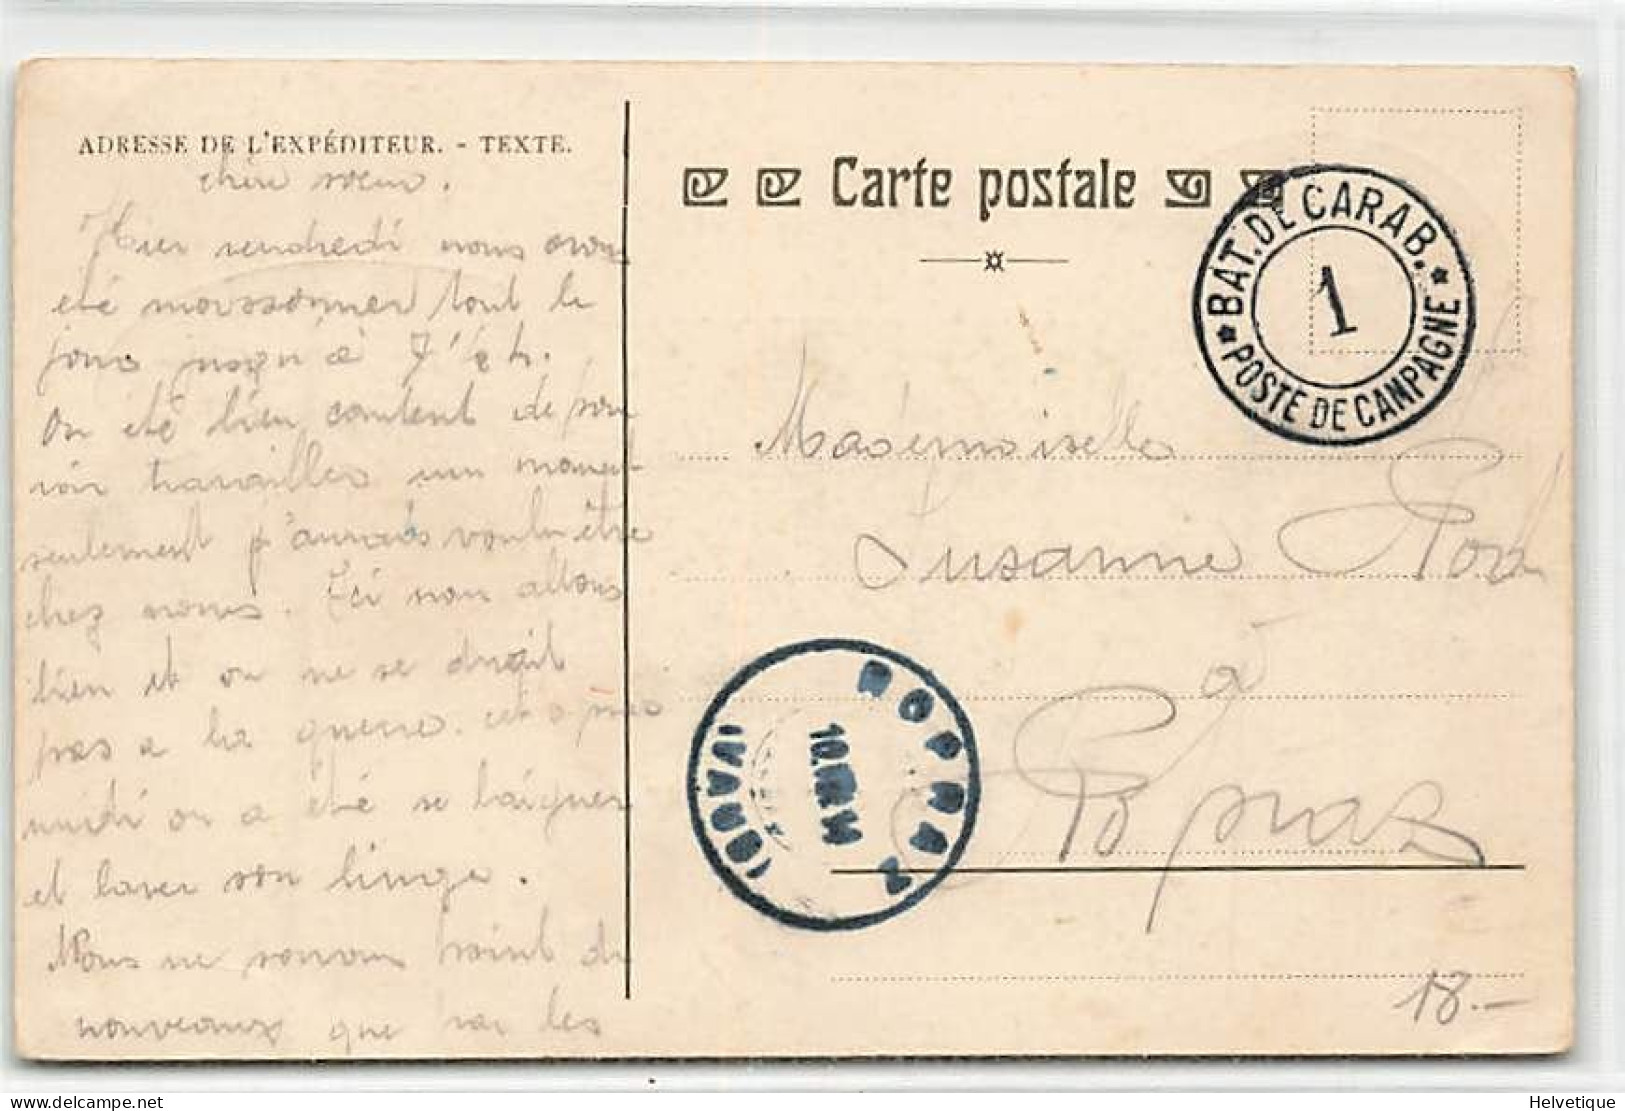 ADRESSE DE L'EXPÉDITEUR. - TEXTE.
chère soeur.
Hier vendredi nous avons
été moissonner tout le
jour jusqu'à 7
On été bien content de pou
voir travailler un moment
seulement j'aurais voulu être
chez nous. Ici nous allons
bien et on ne se dirait
pas a la guerre. cet après
midi on a été se baigner
et laver son linge.
Nous ne savons point de
nouveaux que par les
Carte postale
BAT. DE CARAB.
1
POSTE DE CAMPAGNE
Mademoiselle
Susanne Roch
à
Popraz
(VAUD)
18.-
Helvetique
www.delcampe.net